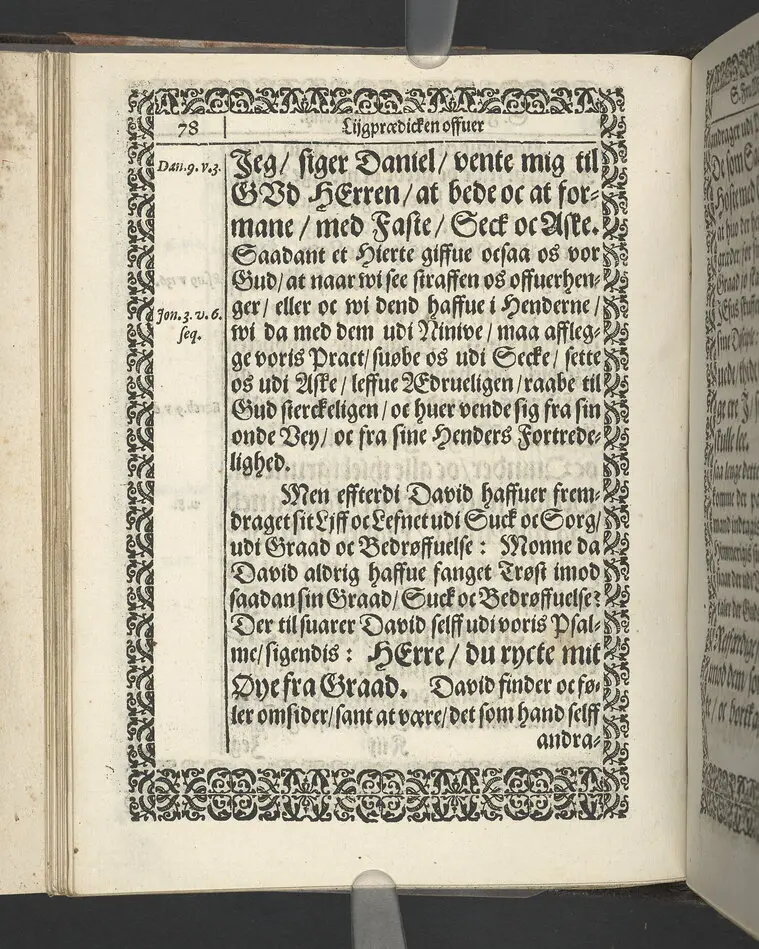 78
Lijgprædicken offuer
Dan. 9. v. 3.
Jeg/ siger Daniel/ vente mig til
GVd HErren/ at bede oc at for-
mane/ med Faste/ Seck oc Aske.
Saadant et Hierte giffue ocsaa os vor
Gud/ at naar wi see straffen os offuerhen-
ger/ eller oc wi dend haffue i Henderne/
Jon. 3. v. 6.
seq.
wi da med dem udi Ninive/ maa affleg-
ge voris Pract/ suøbe os udi Secke/ sette
os udi Aske/ leffue Ædrueligen/ raabe til
Gud sterckeligen/ oc huer vende sig fra sin
onde Vey/ oc fra sine Henders Fortrede-
lighed.
Men effterdi David haffuer frem-
draget sit Lijff oc Lefnet udi Suck oc Sorg/
udi Graad oc Bedrøffuelse: Monne da
David aldrig haffue fanget Trøst imod
saadan sin Graad/ Suck oc Bedrøffuelse?
Der til suarer David selff udi voris Psal-
me/ sigendis: HErre/ du rycte mit
Øye fra Graad. David finder oc fø-
ler omsider/ sant at være/ det som hand selff
andra-